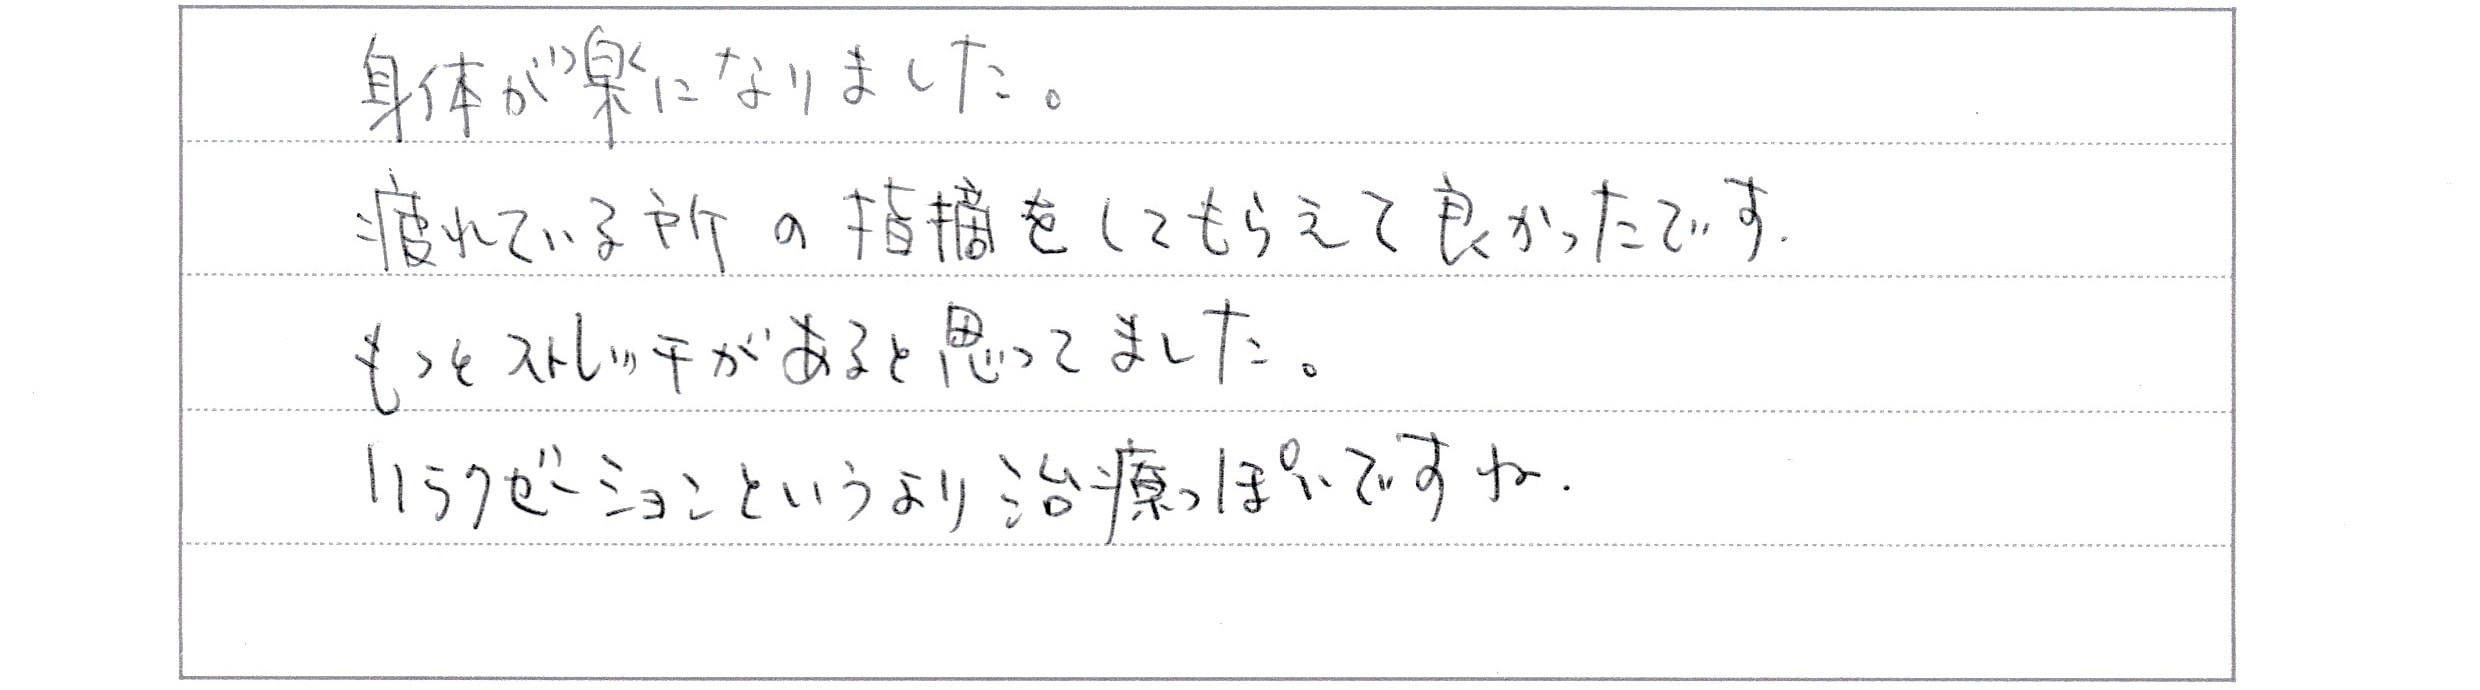 身体が楽になりました。
疲れている所の指摘をしてもらえて良かったです.
もっとストレッチがあると思ってました。
リラクゼーションというより治療っぽいですね.